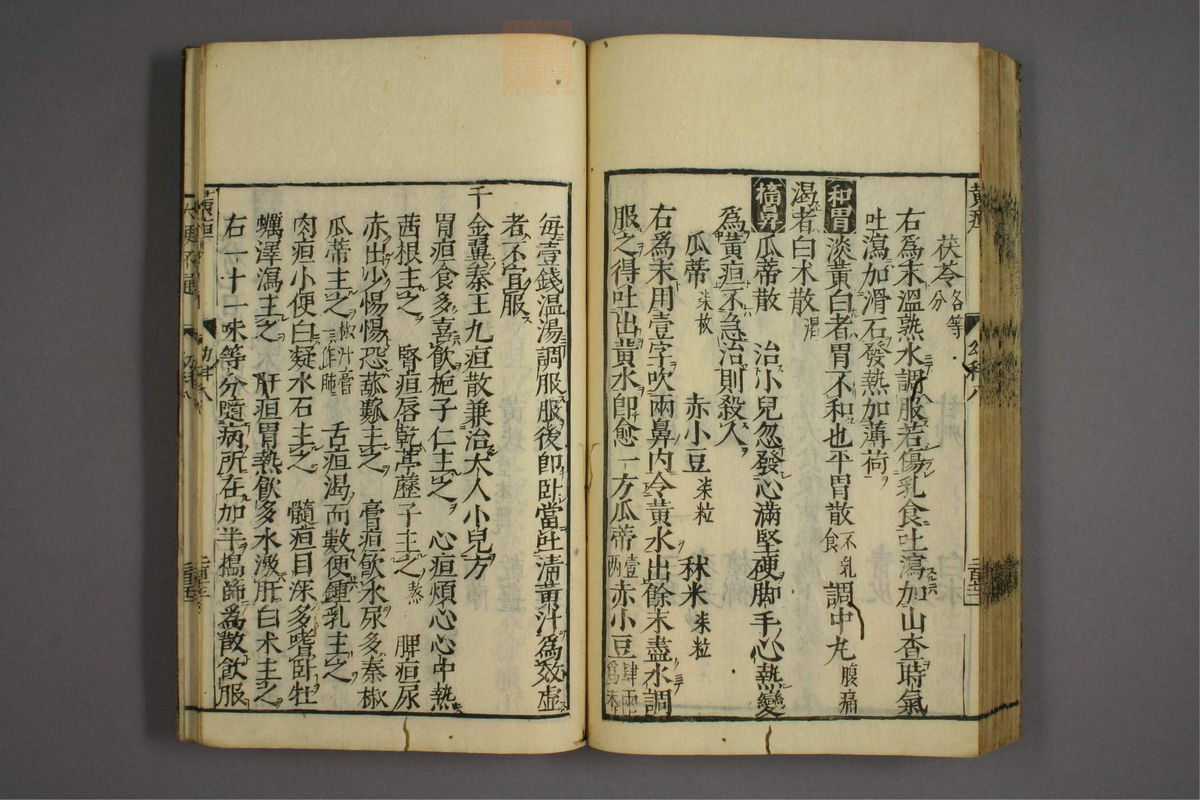 茯苓各等分
右爲末溫熟水調服若傷乳食吐瀉加山查時氣
吐瀉加滑石發熱加薄荷
和胃 淡黃白者胃不和也平胃散不乳食 調中丸腹痛
渴者白朮散渴
搐鼻 瓜蒂散 治小兒忽發心滿堅硬脚手心熱變
爲黃疸不急治則殺人
瓜蒂柒枚 赤小豆柒粒 秫米柒粒
右爲末用壹字吹兩鼻內令黃水出餘末盡水調
服之得吐出黃水卽愈一方瓜蒂壹兩赤小豆肆兩爲末
每壹錢温湯調服服後卽卧當吐清黃汁爲效虛
者不宜服
千金翼秦王九疸散兼治大人小兒方
胃疸食多喜飮梔子仁主之 心疸煩心心中熱
茜根主之 腎疸唇乾葶藶子主之熬 脾疸尿
赤出少惕惕恐㽎蔞主之 膏疸飮水尿多秦椒
瓜蒂主之椒汁膏一作肺 舌疸渴而數便鍾乳主之
肉疸小便白凝水石主之 髓疸目深多嗜卧牡
蠣澤瀉主之 肝疸胃熱飮多水激肝白朮主之
右一十一味等分隨病所在加半搗篩爲散飮服
黃疸
幼科八